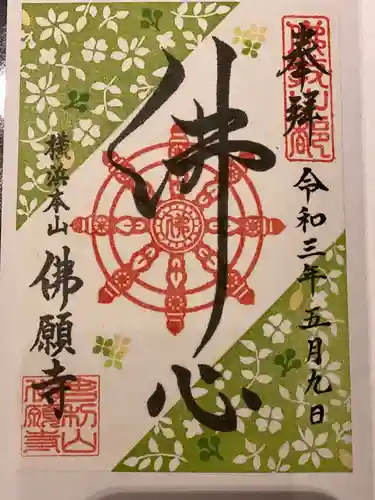 奉拝
令和三年五月九日
佛心
横浜本山
佛願寺